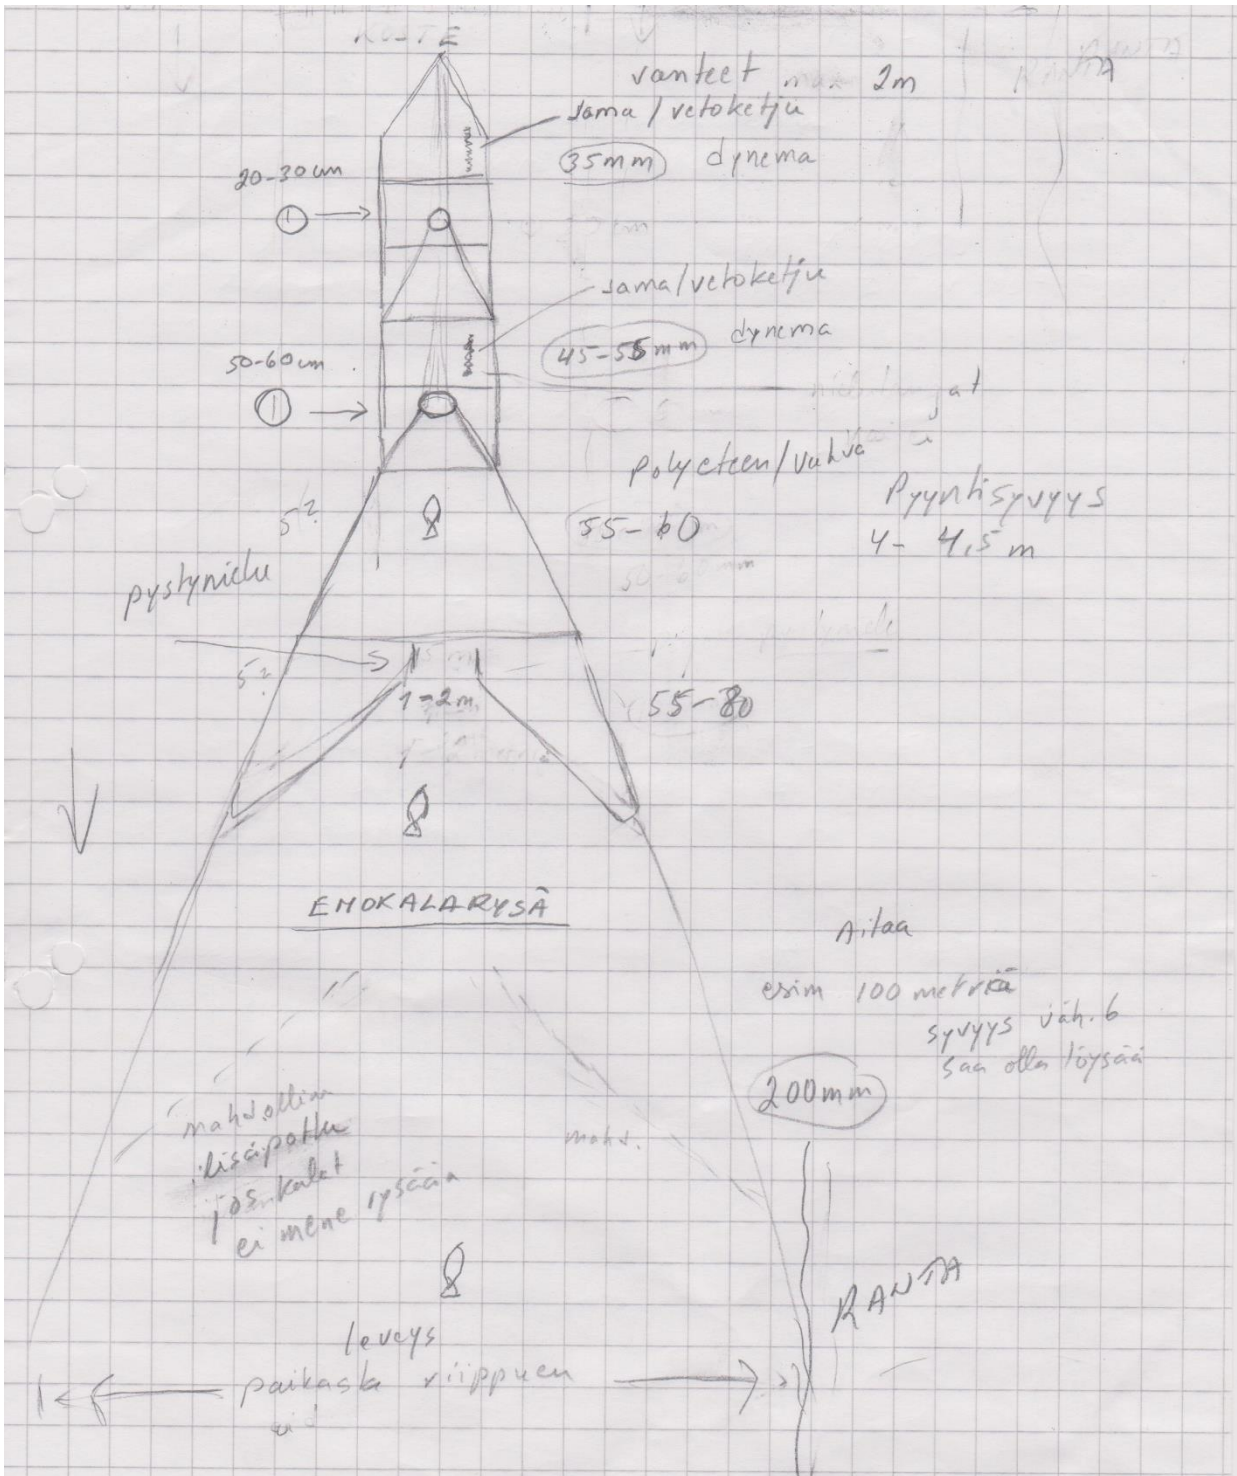 KOSTE
vanteet max 2m
RANTA
sama/vetoketju
35mm dynema
20-30 cm
sama/vetoketju
45-55mm dynema
50-60 cm
polyeteen/vahva
Pyyntisyvyys
4- 4,5 m
5?
55-60
pystynielu
5?
1-2m
55-80
EMOKALARYSÄ
Aitaa
esim 100 metriä
syvyys väh. 6
saa olla löysää
200mm
mahdollinen
lisäpottu
jos kalat
ei mene rysään
mahd.
RANTA
leveys
paikasta riippuen